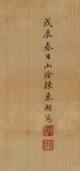 戊辰春日山陰陳東湖寫